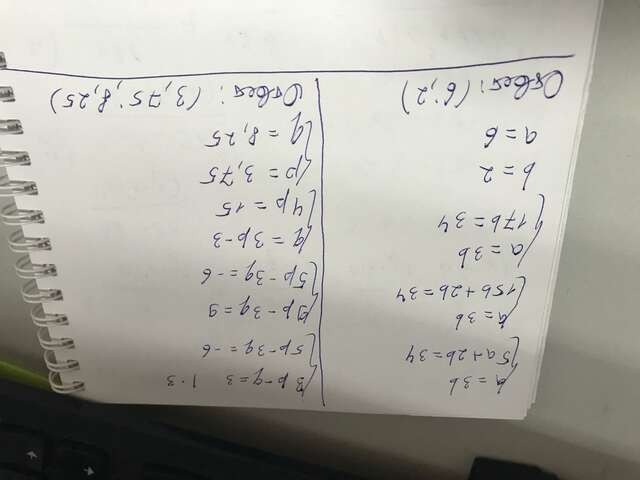 a = 3b
5a + 2b = 34
a = 3b
15b + 2b = 34
a = 3b
17b = 34
b = 2
a = 6
Ответ: (6; 2)
3p - q = 3 | · 3
5p - 3q = -6
9p - 3q = 9
5p - 3q = -6
q = 3p - 3
4p = 15
p = 3,75
q = 8,25
Ответ: (3,75; 8,25)